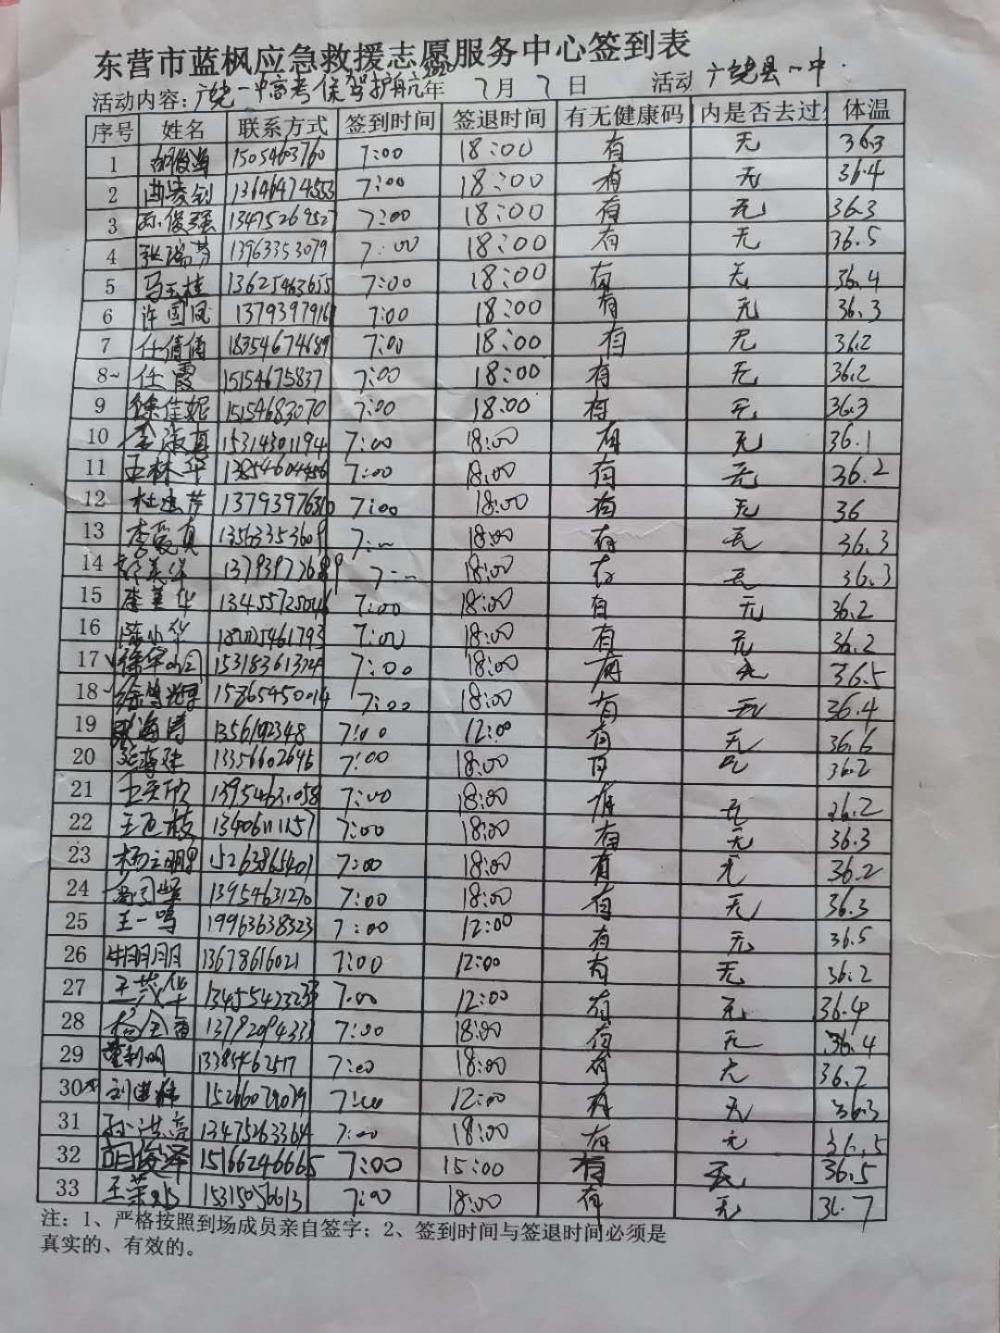 东营市蓝枫应急救援志愿服务中心签到表
活动内容:广饶一中高考保驾护航 2020年 7月7日 活动 广饶县一中.
序号 姓名 联系方式 签到时间 签退时间 有无健康码 内是否去过 体温
1 1505463760 7:00 18:00 有 无 36.3
2 13646474553 7:00 18:00 有 无 36.4
3 孙俊强 13475269527 7:00 18:00 有 无 36.3
4 张瑞芳 13963353079 7:00 18:00 有 无 36.5
5 马玉桂 13625463655 7:00 18:00 有 无 36.4
6 许国凤 1379397916 7:00 18:00 有 无 36.3
7 任倩倩 18354674689 7:00 18:00 有 无 36.2
8~ 任霞 15154675837 7:00 18:00 有 无 36.2
9 徐佳妮 15154683070 7:00 18:00 有 无 36.3
10 15314301194 7:00 18:00 有 无 36.1
11 王林华 13854604456 7:00 18:00 有 无 36.2
12 7:00 18:00 有 无 36
13 李爱真 7:00 18:00 有 无 36.3
14 18:00 有 无 36.3
15 李美华 7:00 18:00 有 无 36.2
16 陈小华 7:00 18:00 有 无 36.2
17 7:00 18:00 有 无 36.5
18 15865450014 7:00 18:00 有 无 36.4
19 1356192348 7:00 12:00 有 无 36.6
20 13356602646 7:00 18:00 有 无 36.2
21 13954631058 7:00 18:00 有 无 36.2
22 王西枝 13406111157 7:00 18:00 有 无 36.3
23 杨立鹏 15263865401 7:00 18:00 有 无 36.2
24 13954631270 7:00 18:00 有 无 36.3
25 王一鸣 19963638323 7:00 12:00 有 无 36.5
26 牛朋朋 13678616021 7:00 12:00 有 无 36.2
27 王茂华 7:00 12:00 有 无 36.4
28 13792094331 7:00 18:00 有 无 36.4
29 董利明 13385462517 7:00 18:00 有 无 36.7
30 15266079079 7:00 12:00 有 无 36.3
31 孙洪亮 13475263364 7:00 18:00 有 无 36.5
32 胡俊泽 15166246665 7:00 15:00 有 无 36.5
33 15315056613 7:00 18:00 有 无 36.7
注:1、严格按照到场成员亲自签字;2、签到时间与签退时间必须是
真实的、有效的。